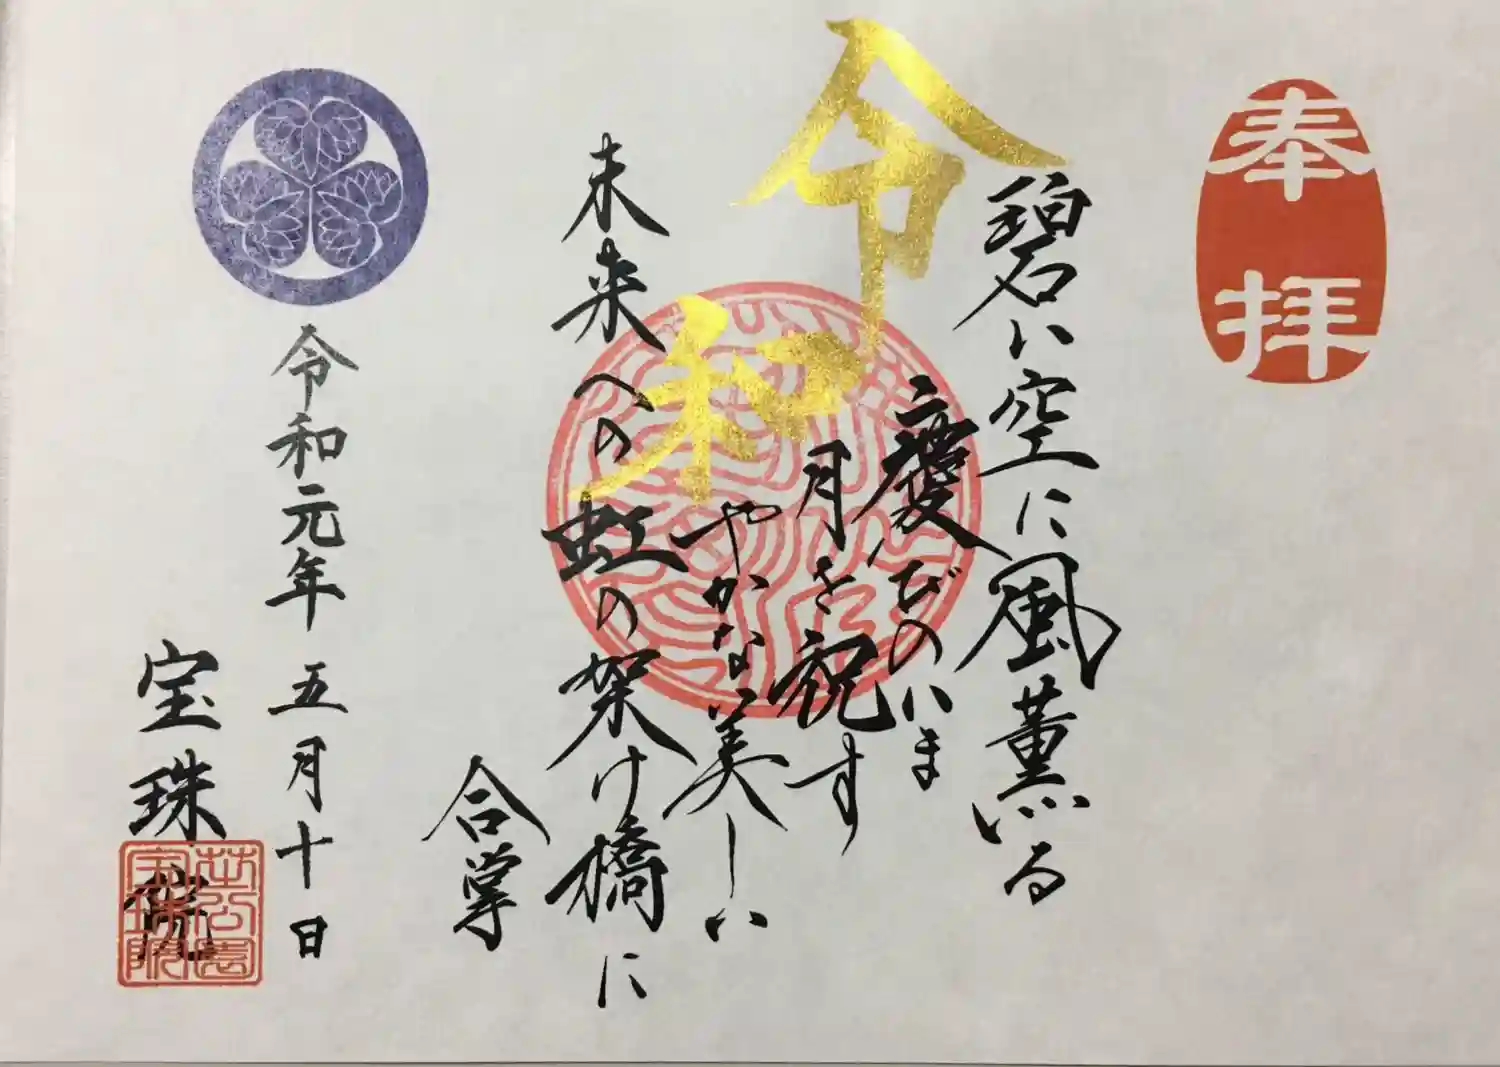 奉拝
碧い空に風薫る
慶びのいま
令月を祝す
和やかな美しい
未来への虹の架け橋に
合掌
令和元年五月十日
宝珠院
芝公園
宝珠院